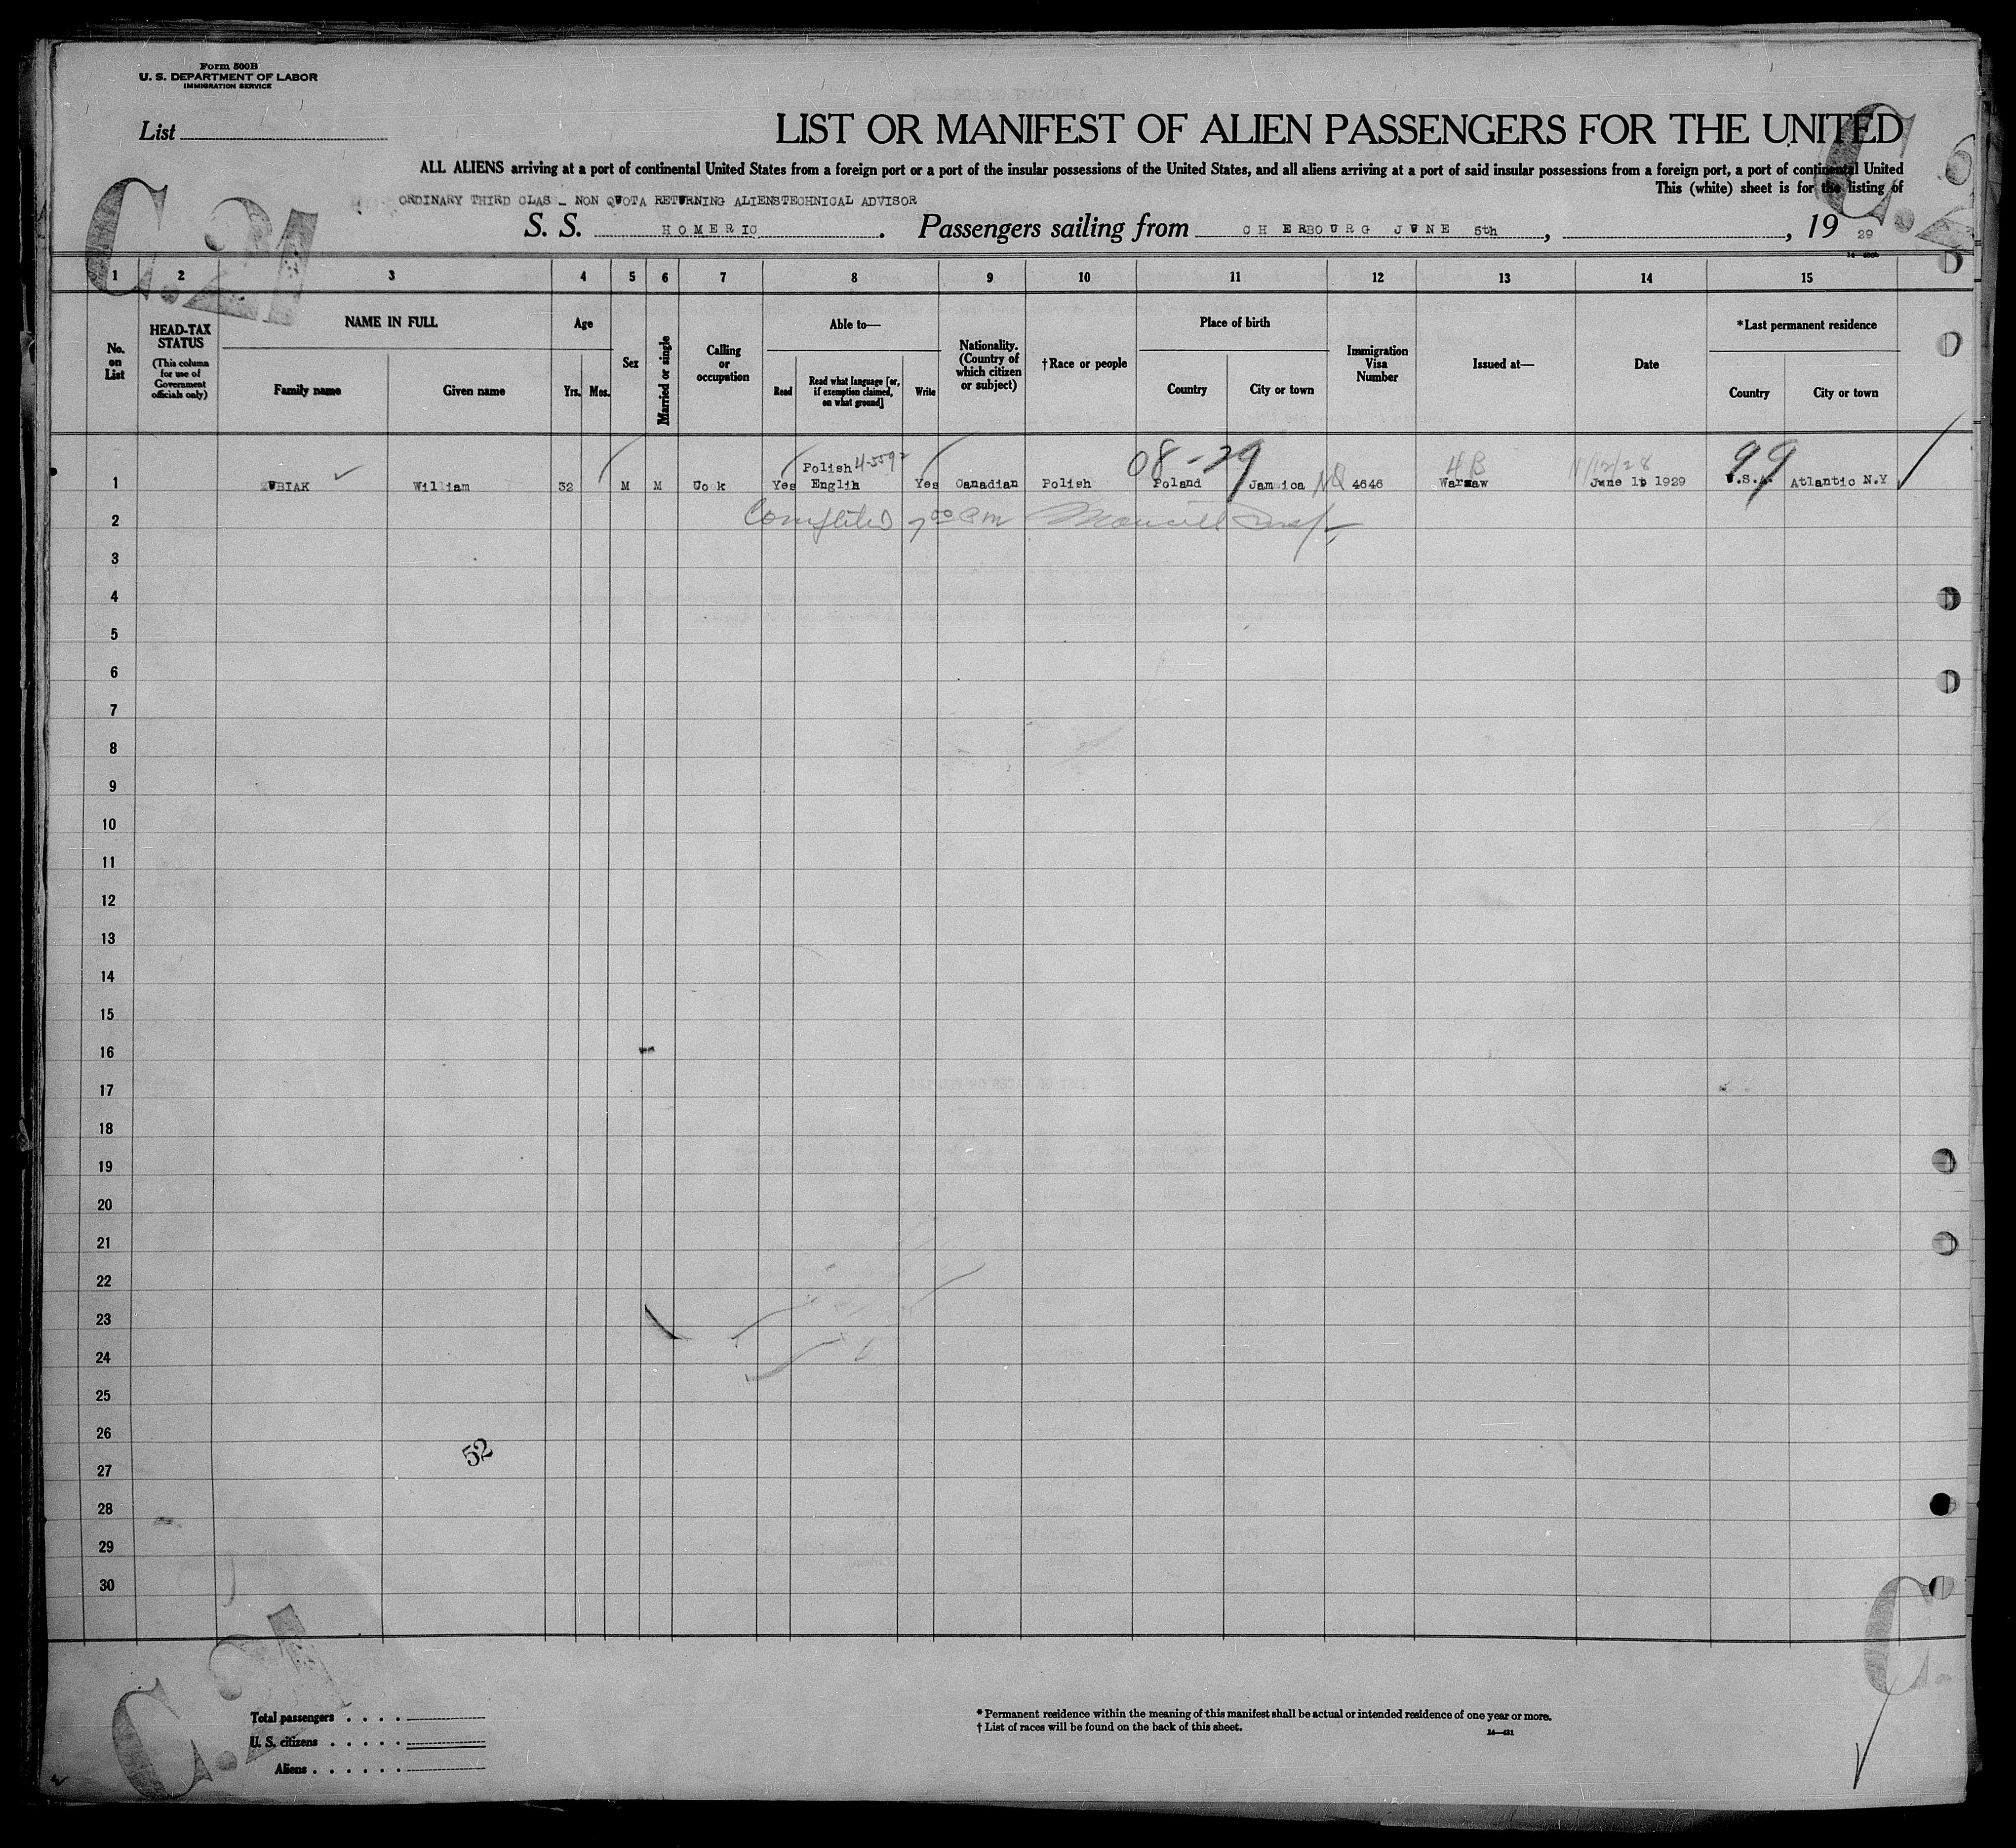 Form 500B
U. S. DEPARTMENT OF LABOR
IMMIGRATION SERVICE
List
LIST OR MANIFEST OF ALIEN PASSENGERS FOR THE UNITED
ALL ALIENS arriving at a port of continental United States from a foreign port or a port of the insular possessions of the United States, and all aliens arriving at a port of said insular possessions from a foreign port, a port of continental United
This (white) sheet is for the listing of
ORDINARY THIRD CLAS - NON QUOTA RETURNING ALIENSTECHNICAL ADVISOR
S. S. HOMERIC. Passengers sailing from CHERBOURG JUNE 5th, , 19 29
C.21
C.2
1 2 3 4 5 6 7 8 9 10 11 12 13 14 15
No. on List
HEAD-TAX STATUS
(This column for use of Government officials only)
NAME IN FULL
Family name Given name
Age
Yrs. Mos.
Sex
Married or single
Calling or occupation
Able to—
Read
Read what language [or, if exemption claimed, on what ground]
Write
Nationality. (Country of which citizen or subject)
†Race or people
Place of birth
Country City or town
Immigration Visa Number
Issued at—
Date
*Last permanent residence
Country City or town
Polish 4-5592 08-29 4B 11/12/28 99
1 ZUBIAK William 32 M M Cook Yes English Yes Canadian Polish Poland Jamaica NQ 4646 Warsaw June 1 1929 U.S.A. Atlantic N.Y
2 Completed 7 00 PM
3
4
5
6
7
8
9
10
11
12
13
14
15
16
17
18
19
20
21
22
23
24
25
26
52
27
28
29
30
C.21
C.
Total passengers . . . .
U. S. citizens . . . . .
Aliens . . . . . .
* Permanent residence within the meaning of this manifest shall be actual or intended residence of one year or more.
† List of races will be found on the back of this sheet.
14—421